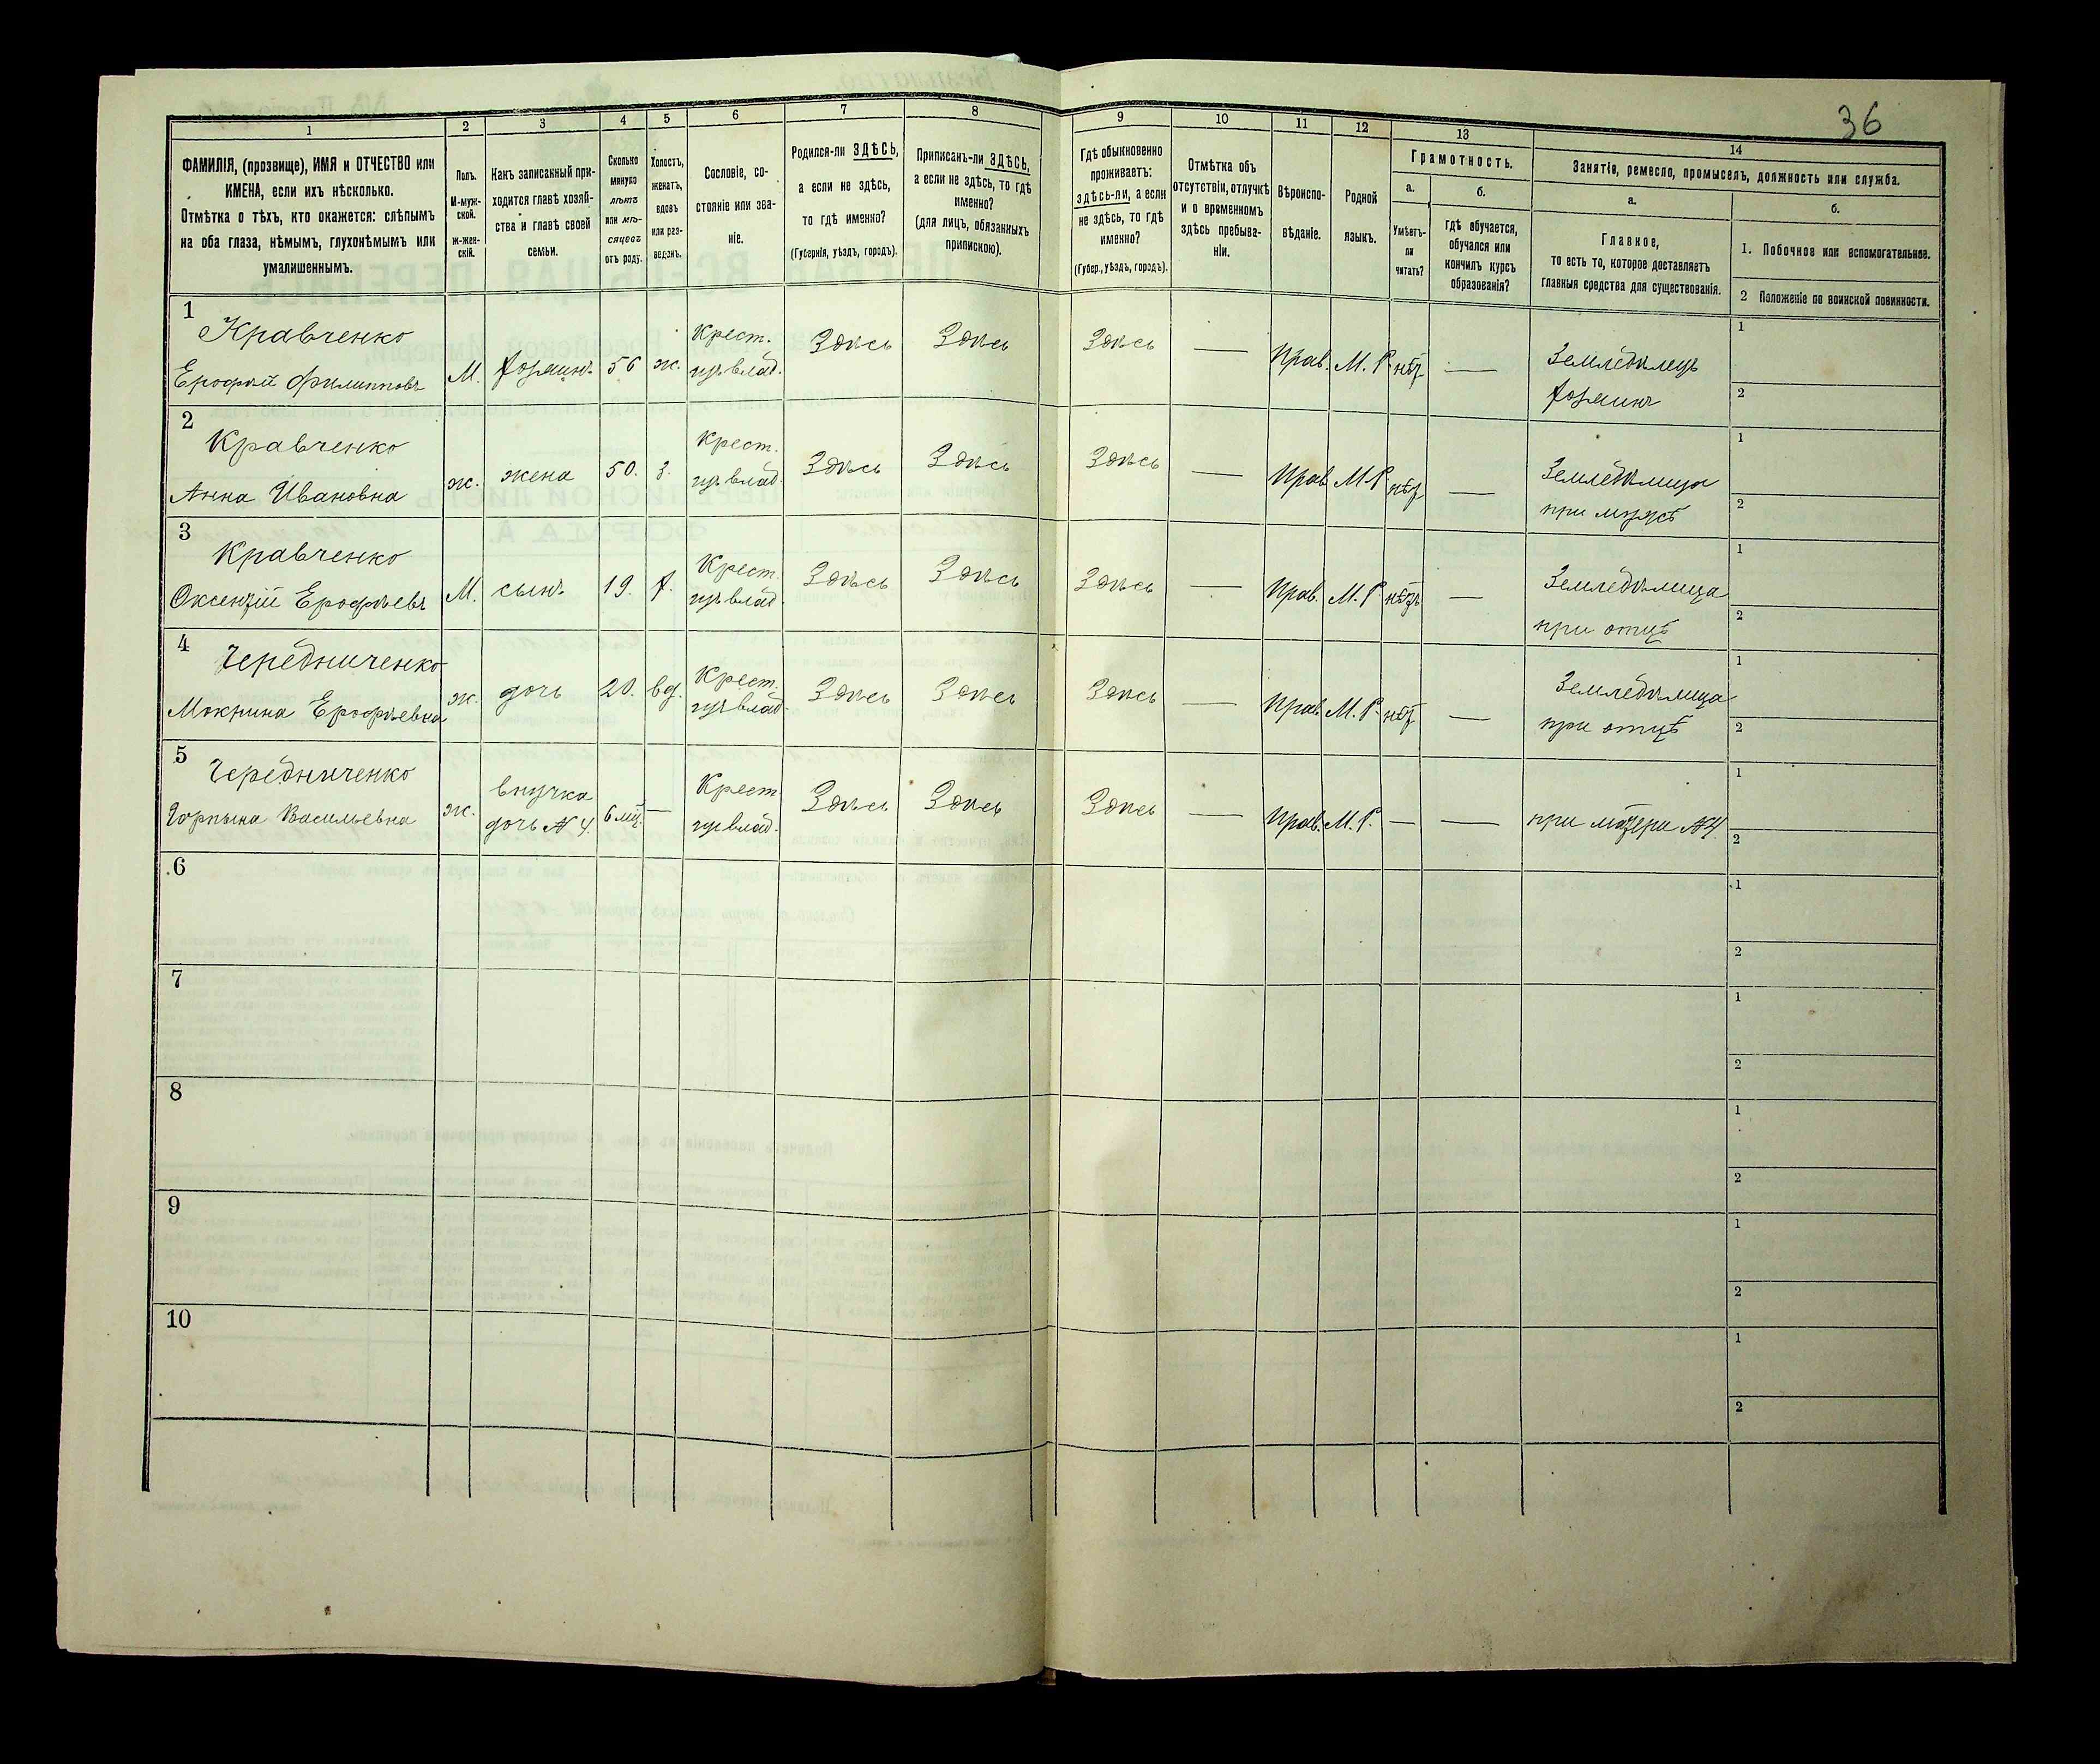 36
1 2 3 4 5 6 7 8 9 10 11 12 13 14
ФАМИЛІЯ, (прозвище), ИМЯ и ОТЧЕСТВО или
ИМЕНА, если ихъ нѣсколько.
Отмѣтка о тѣхъ, кто окажется: слѣпымъ
на оба глаза, нѣмымъ, глухонѣмымъ или
умалишеннымъ.
Полъ.
М-муж-
ской.
ж-жен-
скій.
Какъ записанный при-
ходится главѣ хозяй-
ства и главѣ своей
семьи.
Сколько
минуло
лѣтъ
или мѣ-
сяцевъ
отъ роду.
Холостъ,
женатъ,
вдовъ
или раз-
веденъ.
Сословіе, со-
стояніе или зва-
ніе.
Родился-ли ЗДѢСЬ,
а если не здѣсь,
то гдѣ именно?
(Губернія, уѣздъ, городъ).
Приписанъ-ли ЗДѢСЬ,
а если не здѣсь, то гдѣ
именно?
(для лицъ, обязанныхъ
припискою).
Гдѣ обыкновенно
проживаетъ:
здѣсь-ли, а если
не здѣсь, то гдѣ
именно?
(Губер., уѣздъ, городъ).
Отмѣтка объ
отсутствіи, отлучкѣ
и о временномъ
здѣсь пребыва-
ніи.
Вѣроиспо-
вѣданіе.
Родной
языкъ.
Грамотность.
а.
Умѣетъ-
ли
читать?
б.
Гдѣ обучается,
обучался или
кончилъ курсъ
образованія?
Занятіе, ремесло, промыселъ, должность или служба.
а.
Главное,
то есть то, которое доставляетъ
главныя средства для существованія.
б.
1. Побочное или вспомогательное.
2 Положеніе по воинской повинности.
1
Кравченко
Ерофѣй Филипповъ
М. хозяинъ 56 ж.
Крест.
Здѣсь Здѣсь Здѣсь — Прав. М. Р. нѣт —
Земледѣлецъ
хозяинъ
1
2
2
Кравченко
Анна Ивановна
ж. жена 50. з.
Крест.
Здѣсь Здѣсь Здѣсь — Прав М. Р. нѣт —
Земледѣлица
при мужѣ
1
2
3
Кравченко
Оксентій Ерофѣевъ
М. сынъ 19. х.
Крест.
Здѣсь Здѣсь Здѣсь — Прав. М. Р. нѣтъ —
Земледѣлица
при отцѣ
1
2
4
Чередниченко
Мокрина Ерофѣевна
ж. дочь 20. вд.
Крест.
Здѣсь Здѣсь Здѣсь — Прав М. Р. нѣт —
Земледѣлица
при отцѣ
1
2
5
Чередниченко
Горпына Васильевна
ж.
внучка
дочь № 4.
6 мц. —
Крест
Здѣсь Здѣсь Здѣсь — Прав. М. Р. — —
при матери № 4.
1
2
6
1
2
7
1
2
8
1
2
9
1
2
10
1
2